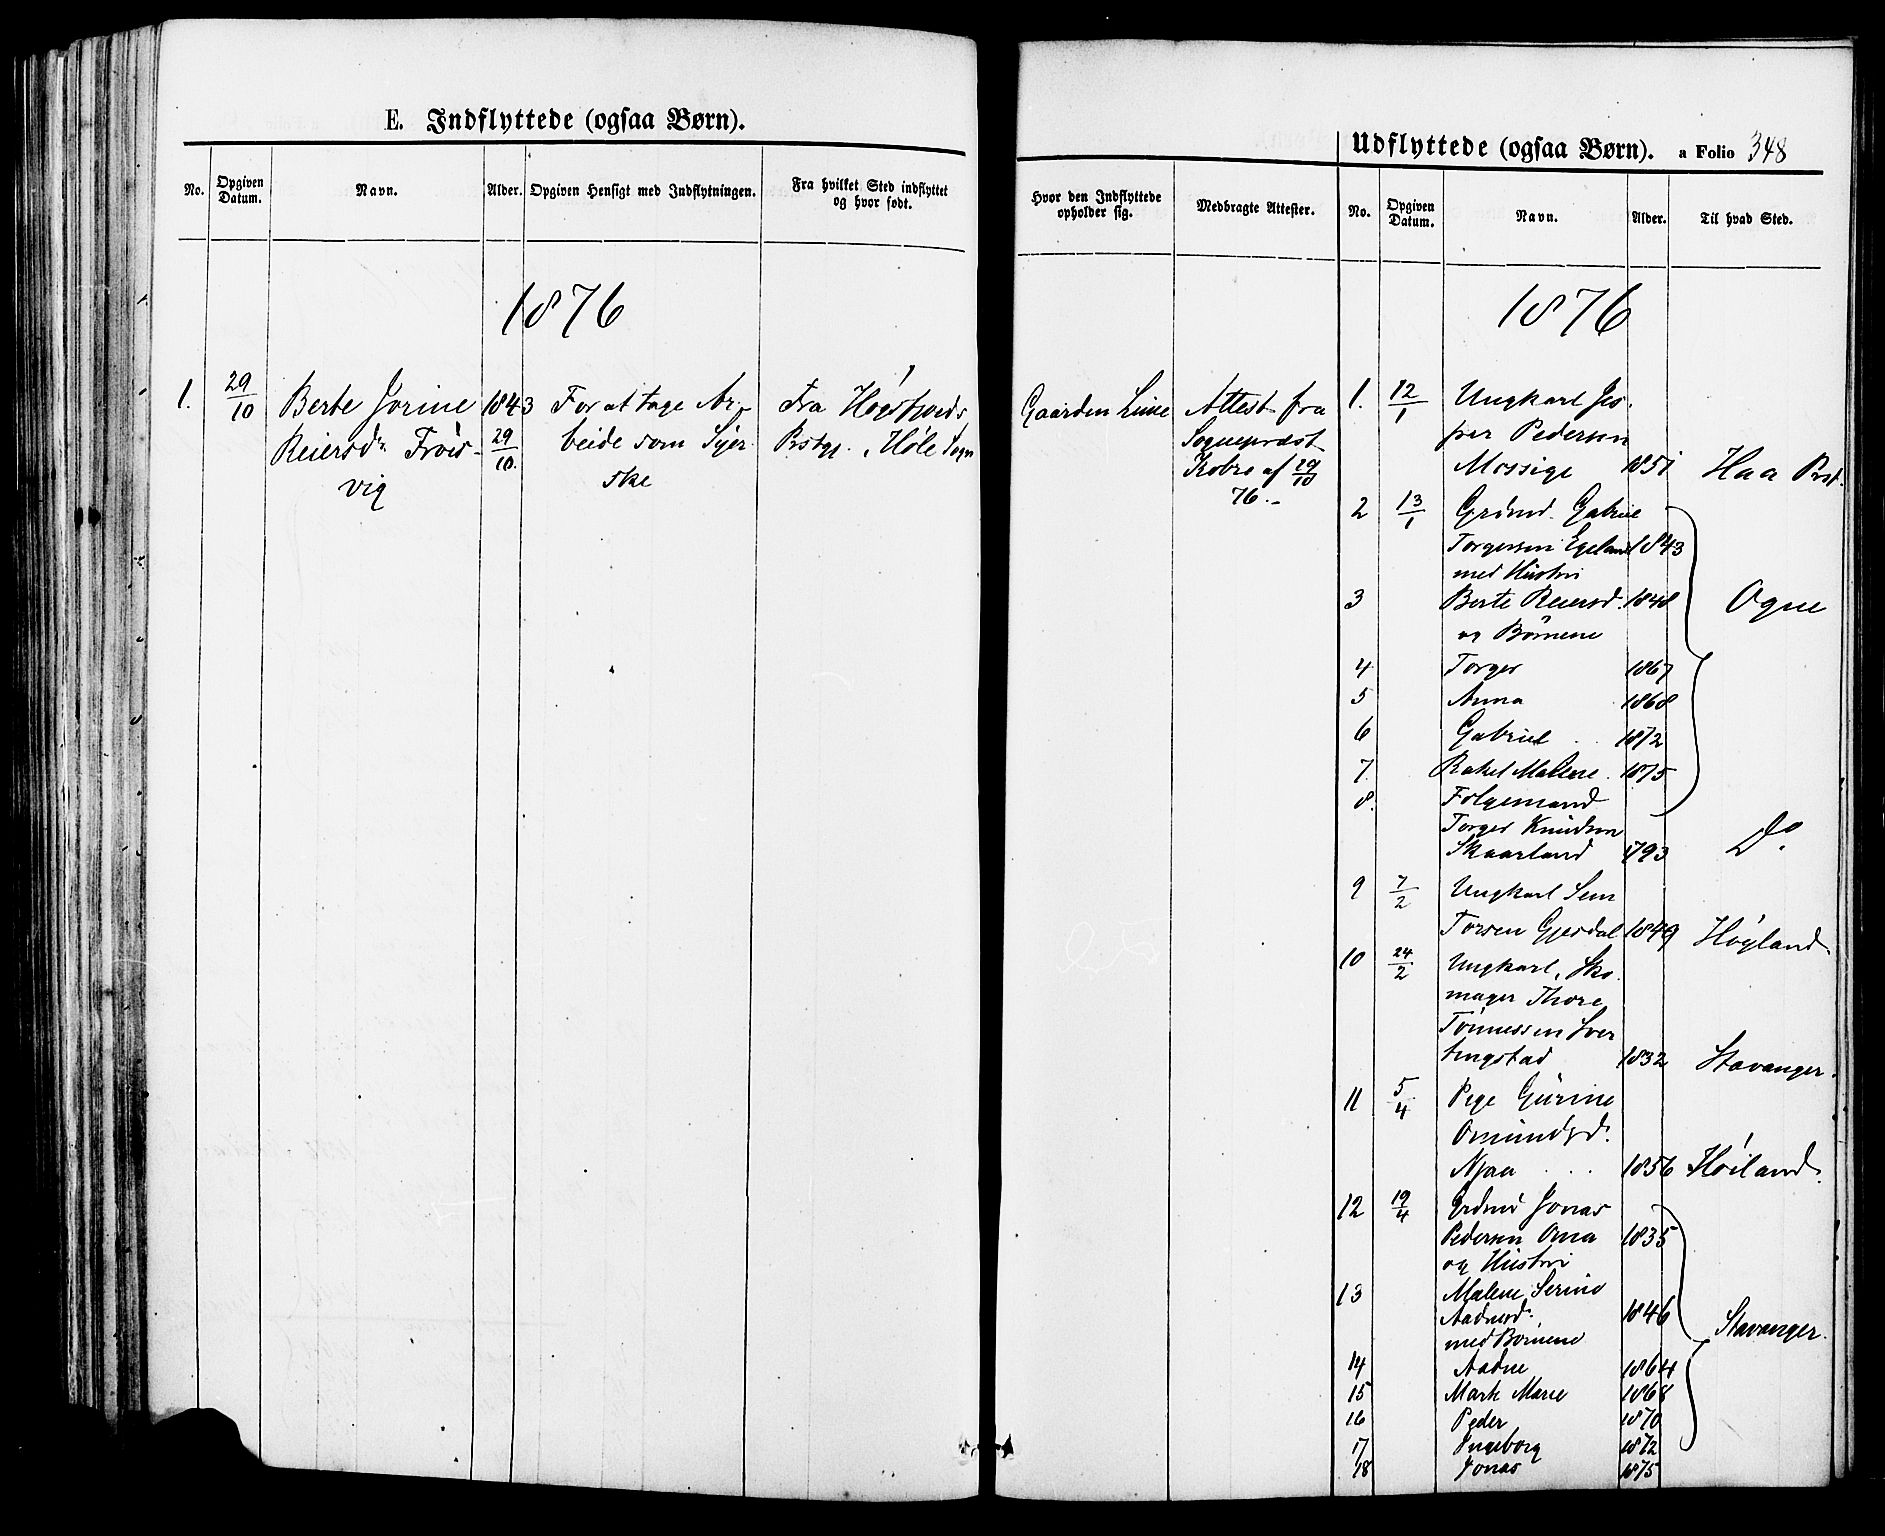 E. Indflyttede (ogsaa Børn).
No. Opgiven Datum. Navn. Alder. Opgiven Hensigt med Indflytningen. Fra hvilket Sted indflyttet og hvor født.
1876
1. 29/10 Berte Jorine 1843 For at tage Ar-
Reiersd. Frøis- 29/10. beide som Syer-
vig ske
Fra Høgsfjords
Prstgj., Høle Sogn
Udflyttede (ogsaa Børn). a Folio 348
Hvor den Indflyttede opholder sig. Medbragte Attester. No. Opgiven Datum. Navn. Alder. Til hvad Sted.
1876
Gaarden Lime Attest fra
Sognepræst
Kobro af 29/10
76.-
1. 12/1 Ungkarl Jes-
per Pedersen
Mossige 1851 Haa Prst.
2 13/1 Grdmd. Gabriel
Torgersen Egeland 1843
med Hustru
3 Berte Reiersd. 1848 Ogne
og Børnene
4 Torger 1867
5 Anna 1868
6 Gabriel 1872
7. Rakel Malene. 1875
8. Følgemand
Torger Knudsen
Skaarland 1793 Do.
9 7/2 Ungkarl Sem
Torsen Gjesdal 1849 Høyland.
10 24/2 Ungkarl, Sko-
mager Thore
Tønnessen Sver
tingstad 1832 Stavanger.
11 5/4 Pige Gurine
Omundsd.
Njaa 1856 Høiland.
12 19/4 Grdmd Jonas
Pedersen Oma 1835
og Hustru
13 Malene Serine
Aadnesd. 1846 Stavanger.
med Børnene
14 Aadne 1864
15 Marte Marie 1868
16 Peder 1870
17 Ingeborg 1872
18 Jonas 1875